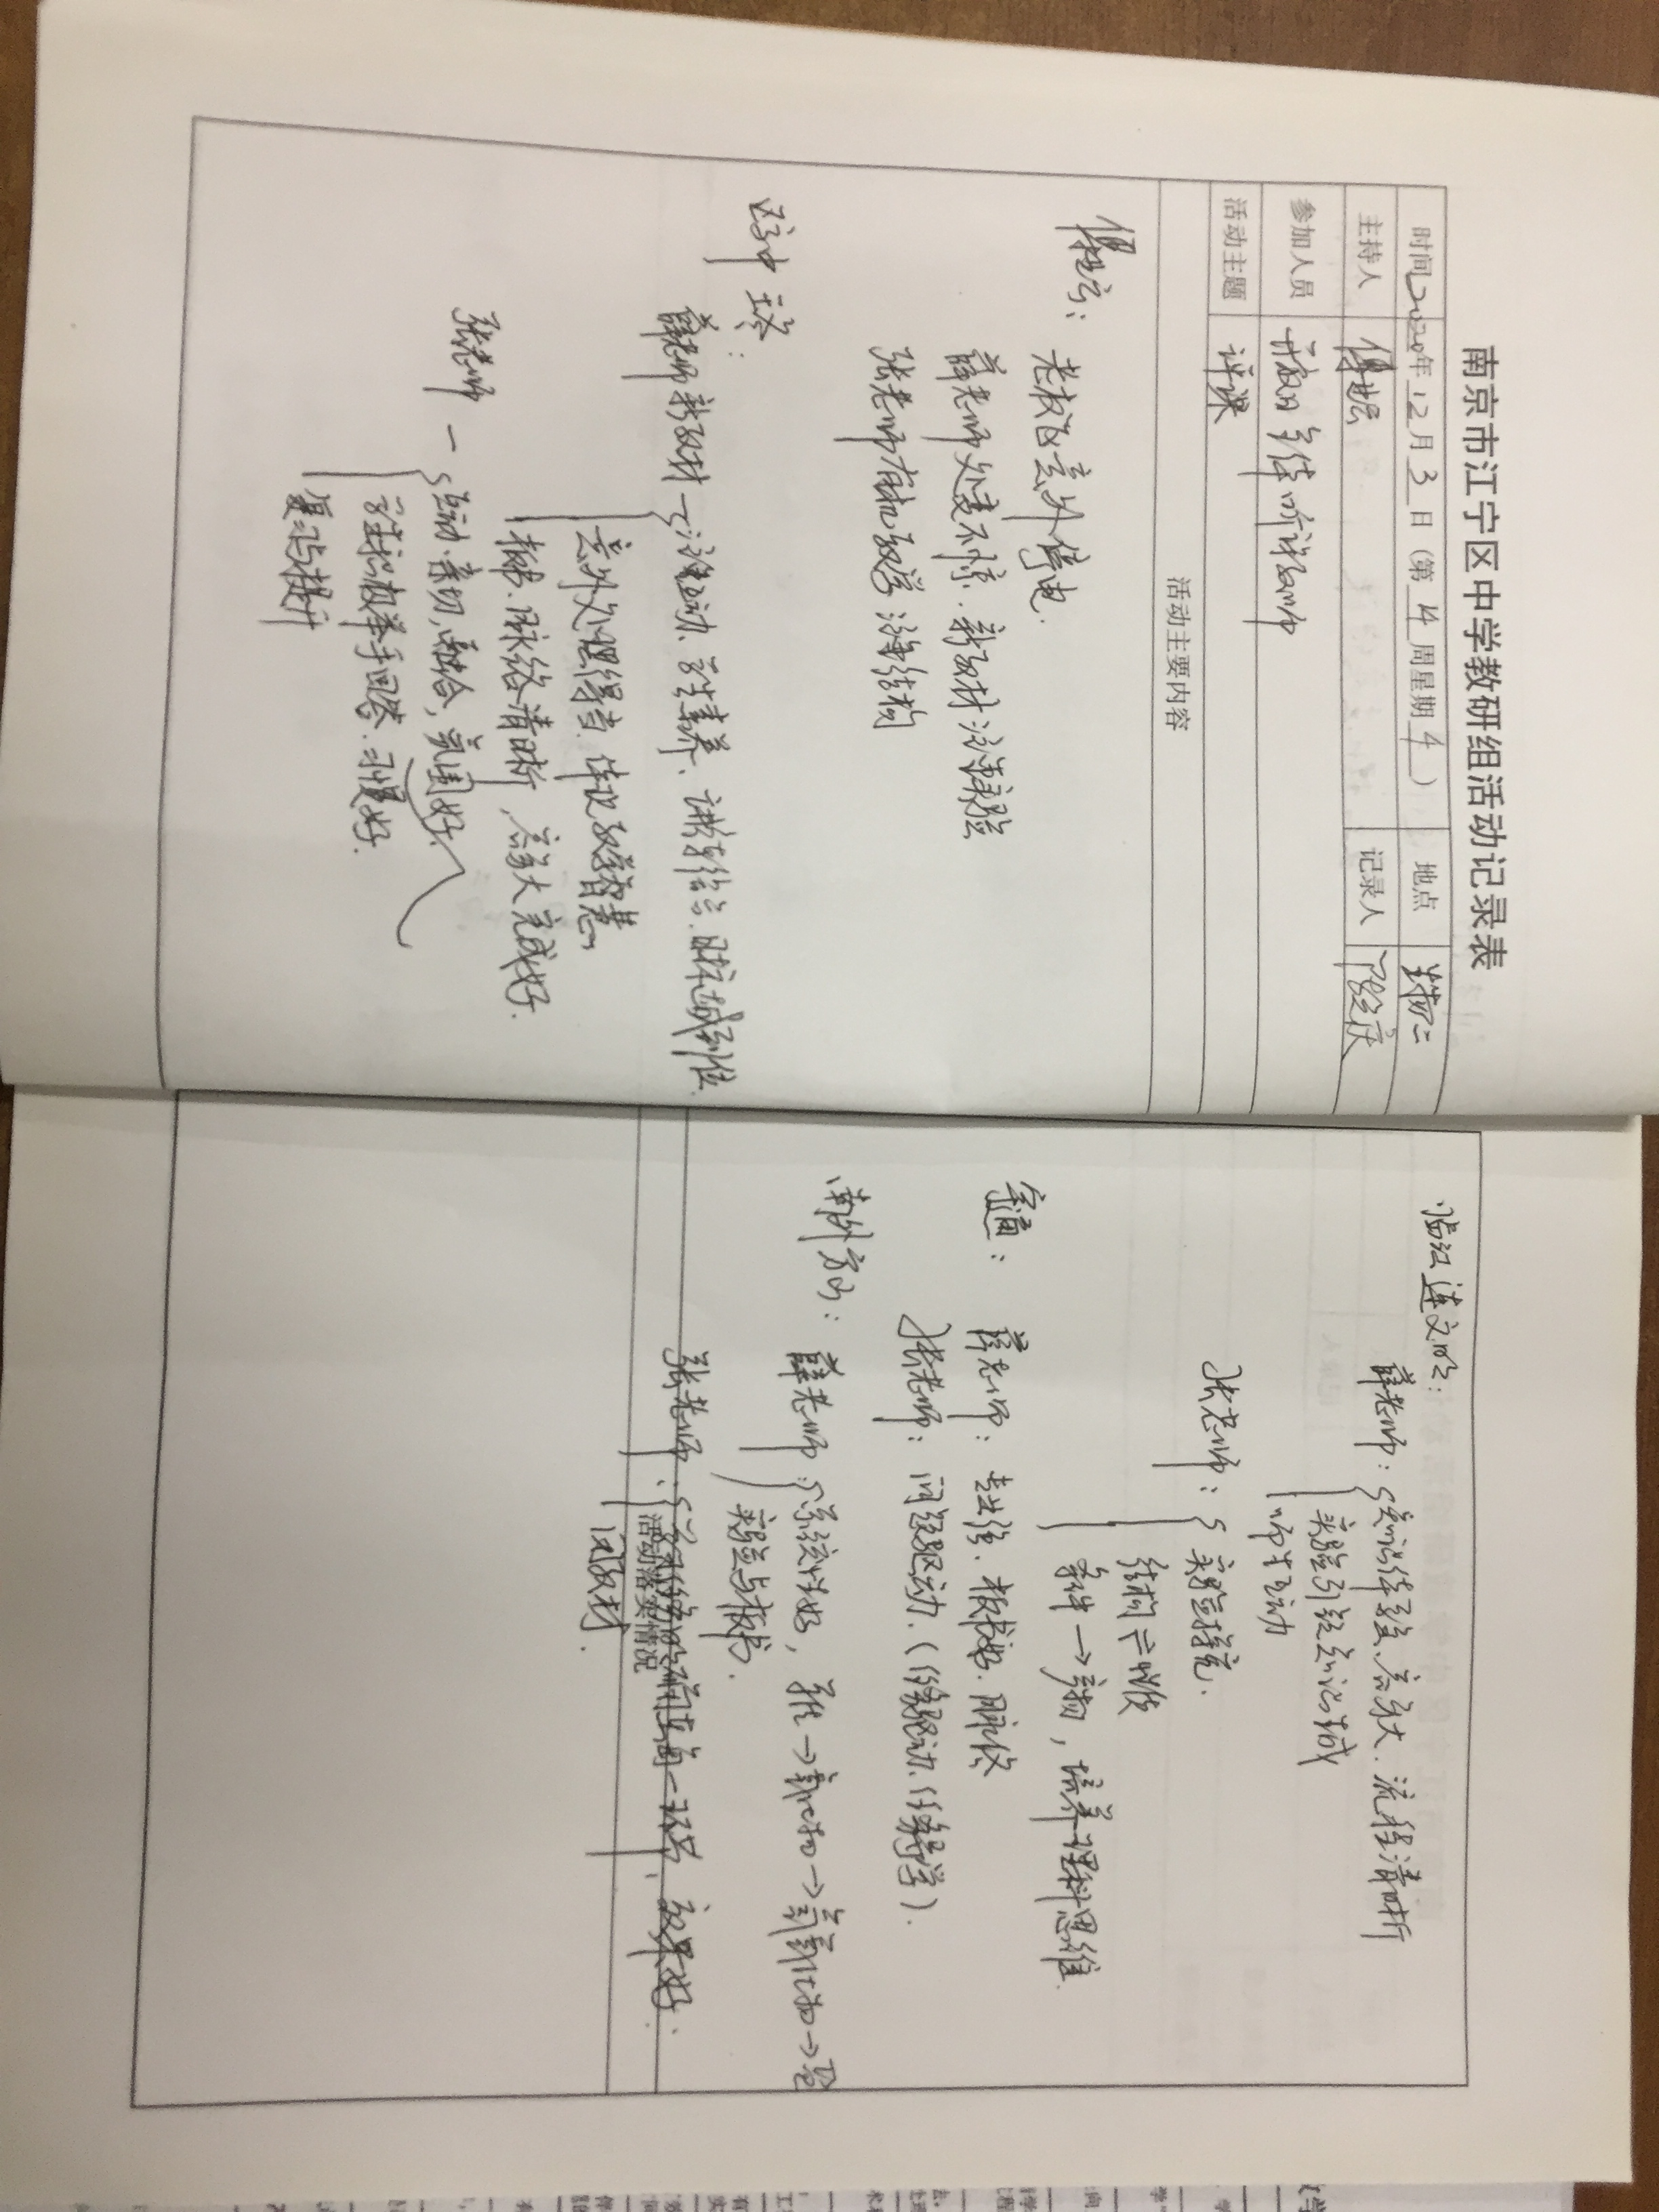 南京市江宁区中学教研组活动记录表
时间 2020年 12 月 3 日 (第 14 周星期 4 ) 地点 生物二
主持人 傅世云 记录人
参加人员 开放日全体听评教师
活动主题 评课
活动主要内容
傅世云:
老校区意外停电.
薛老师处变不惊.新教材注重实验
张老师有机教学注重结构
王冬:
薛老师新教材—注重互动、学生素养、讲练结合.目标达成到位.
意外处理得当.体现教学智慧
板书.脉络清晰,容量大完成好.
张老师— 互动.亲切,融合,氛围好.
学生积极举手回答.习惯好.
复习与提升
临江 连文明:
薛老师: 知识体系、容量大.流程清晰
实验引领知识生成
师生互动
张老师: 实验探究.
结构⇌性质
条件→产物,培养理科思维.
薛老师: 专业强.板书好.脉络
张老师: 问题驱动.(任务驱动.任务导学).
南外方山:
薛老师: 系统性好,单质→氧化物→氢氧化物→盐
实验与板书.
张老师: 学习任务明确在每一环节,效果好.
活动落实情况
教材.